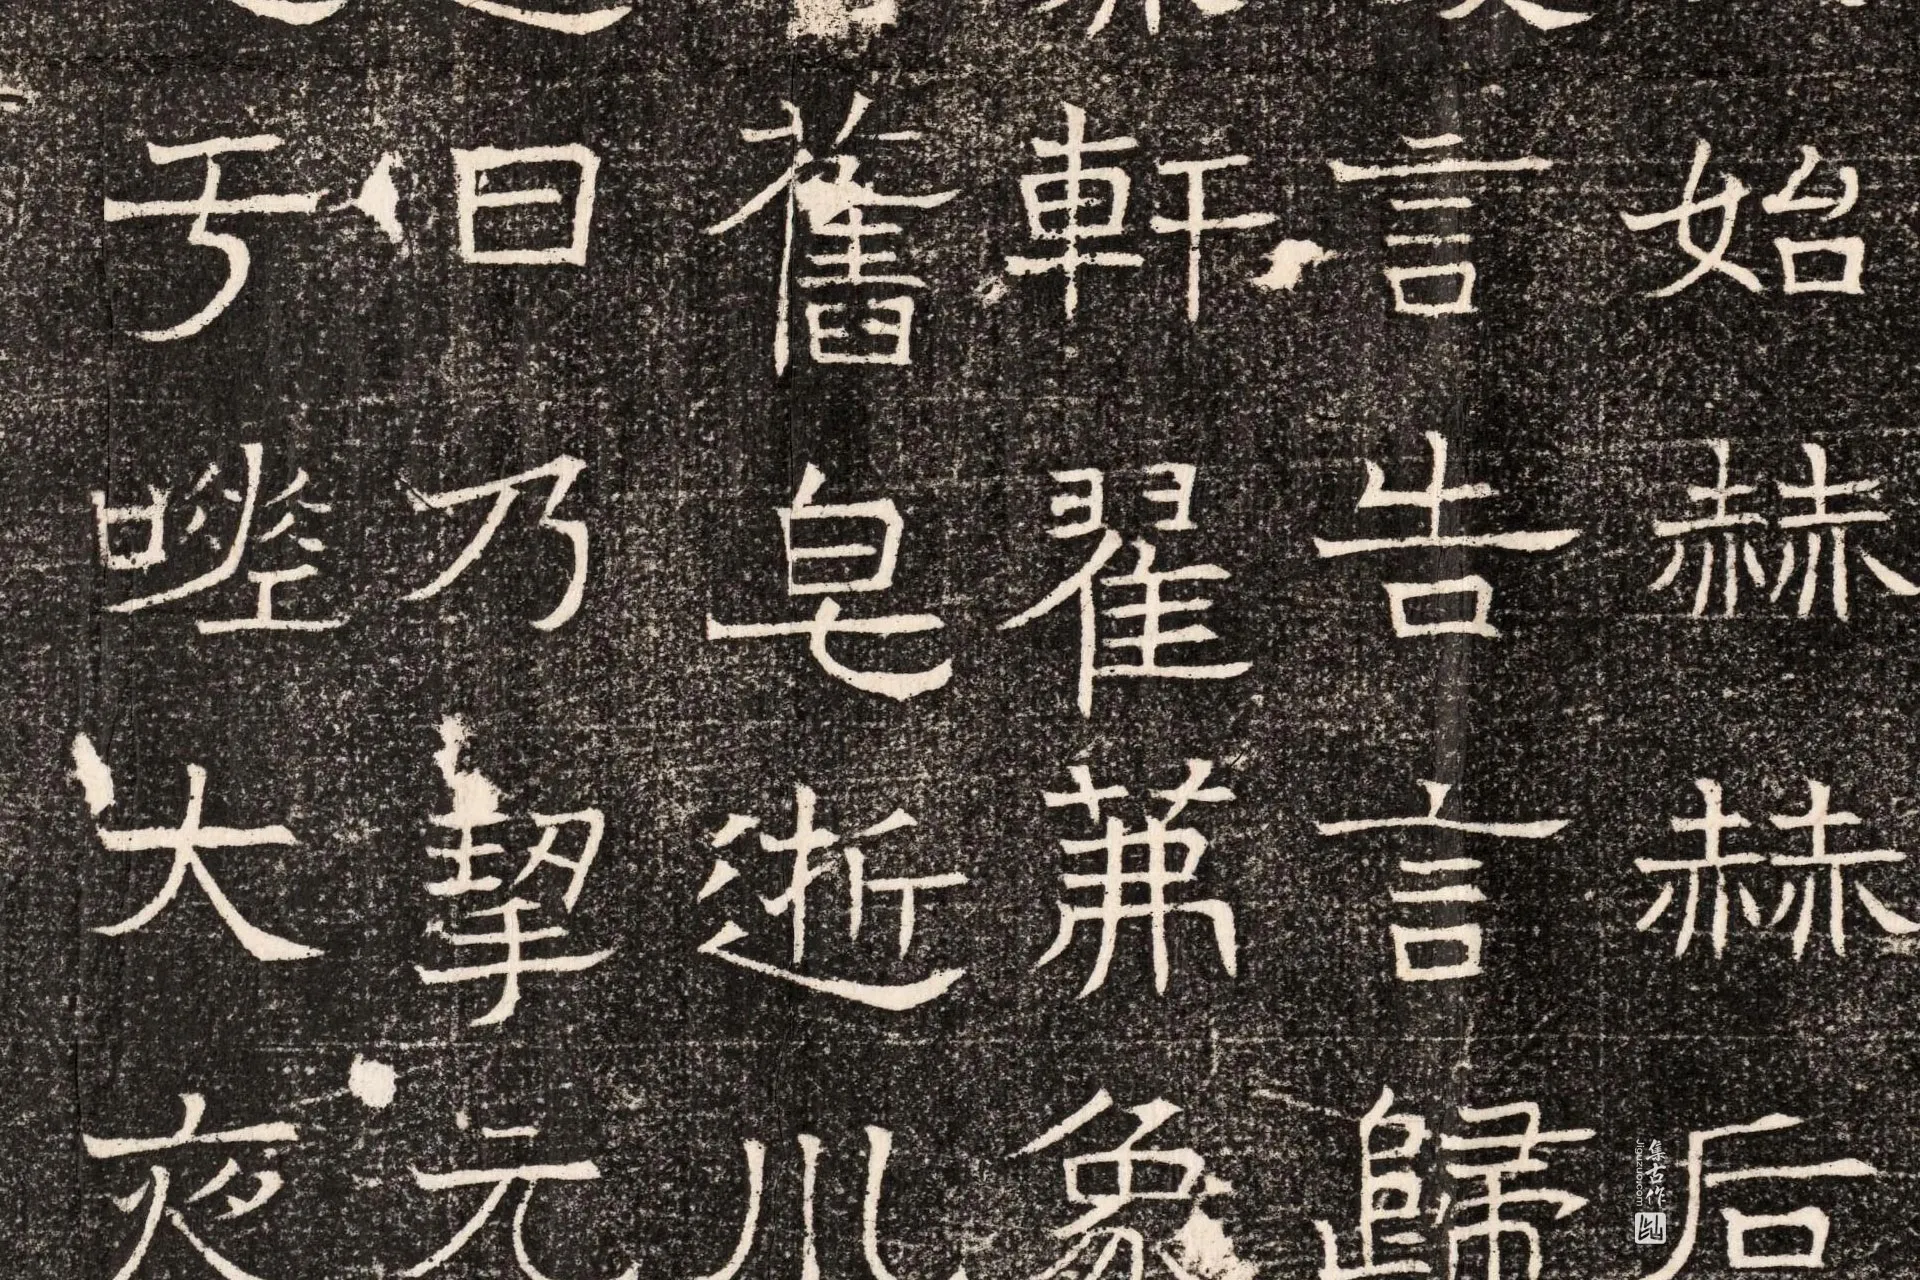 始赫赫后
言告言歸
軒翟茀象
舊皂逝川
曰乃挈元
于嗟大夜
集古作
Jiguzuo.com